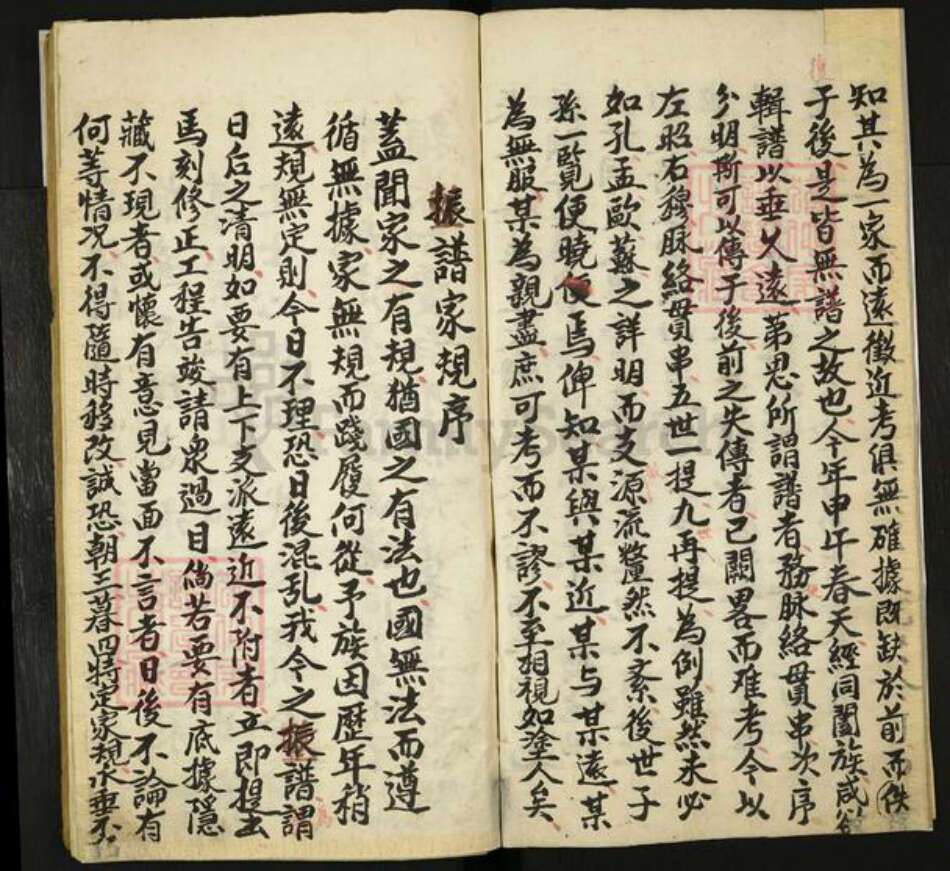 知其為一家而遠徵近考俱無確據既缺於前而佚
子後是皆無譜之故也今年申午春天經同闔族咸
輯譜以垂久遠第思所謂譜者務脉絡貫串次序
分明斯可以傳于後前之失傳者已闕畧而难考今以
左昭右穆脉絡貫串五世一提九再提為例雖然未必
如孔孟歐蘇之詳明而支源流釐然不紊後世子
孫一覧便曉便焉俾知某與某近某与某遠某
為無服某為親盡庶可考而不謬不至相視如塗人矣
振譜家規序
蓋聞家之有規猶國之有法也國無法而遵
循無據家無規而踐履何從予族因歷年稍
遠規無定則今日不理恐日後混乱我今之振譜謂
日后之清明如要有上下支派遠近不附者立即提出
馬刻修正工程告竣請衆過目倘若要有底據隱
藏不現者或懷有意見當面不言者日後不論有
何等情况不得隨時移改誠恐朝三暮四特定家規永垂不